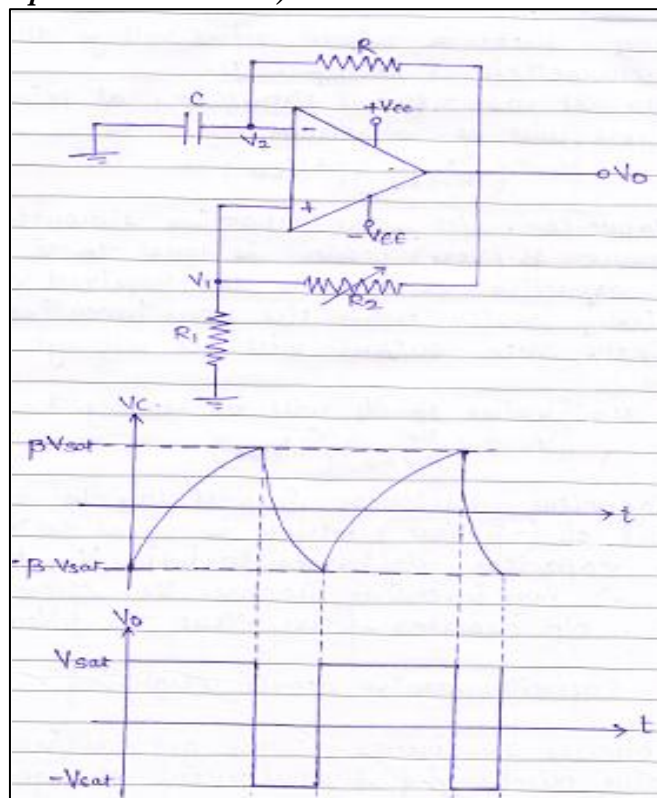 R
C
+Vcc
V2
-
Vo
+
-Vcc
V1
R2
R1
Vc
βVsat
t
-β Vsat
Vo
Vsat
t
-Vsat